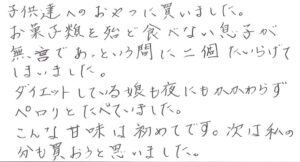 子供達へのおやつに買いました。
お菓子類を殆ど食べない息子が
無言であっという間に二個たいらげて
しまいました。
ダイエットしている娘も夜にもかかわらず
ペロリとたべていました。
こんな甘味は初めてです。次は私の
分も買おうと思いました。